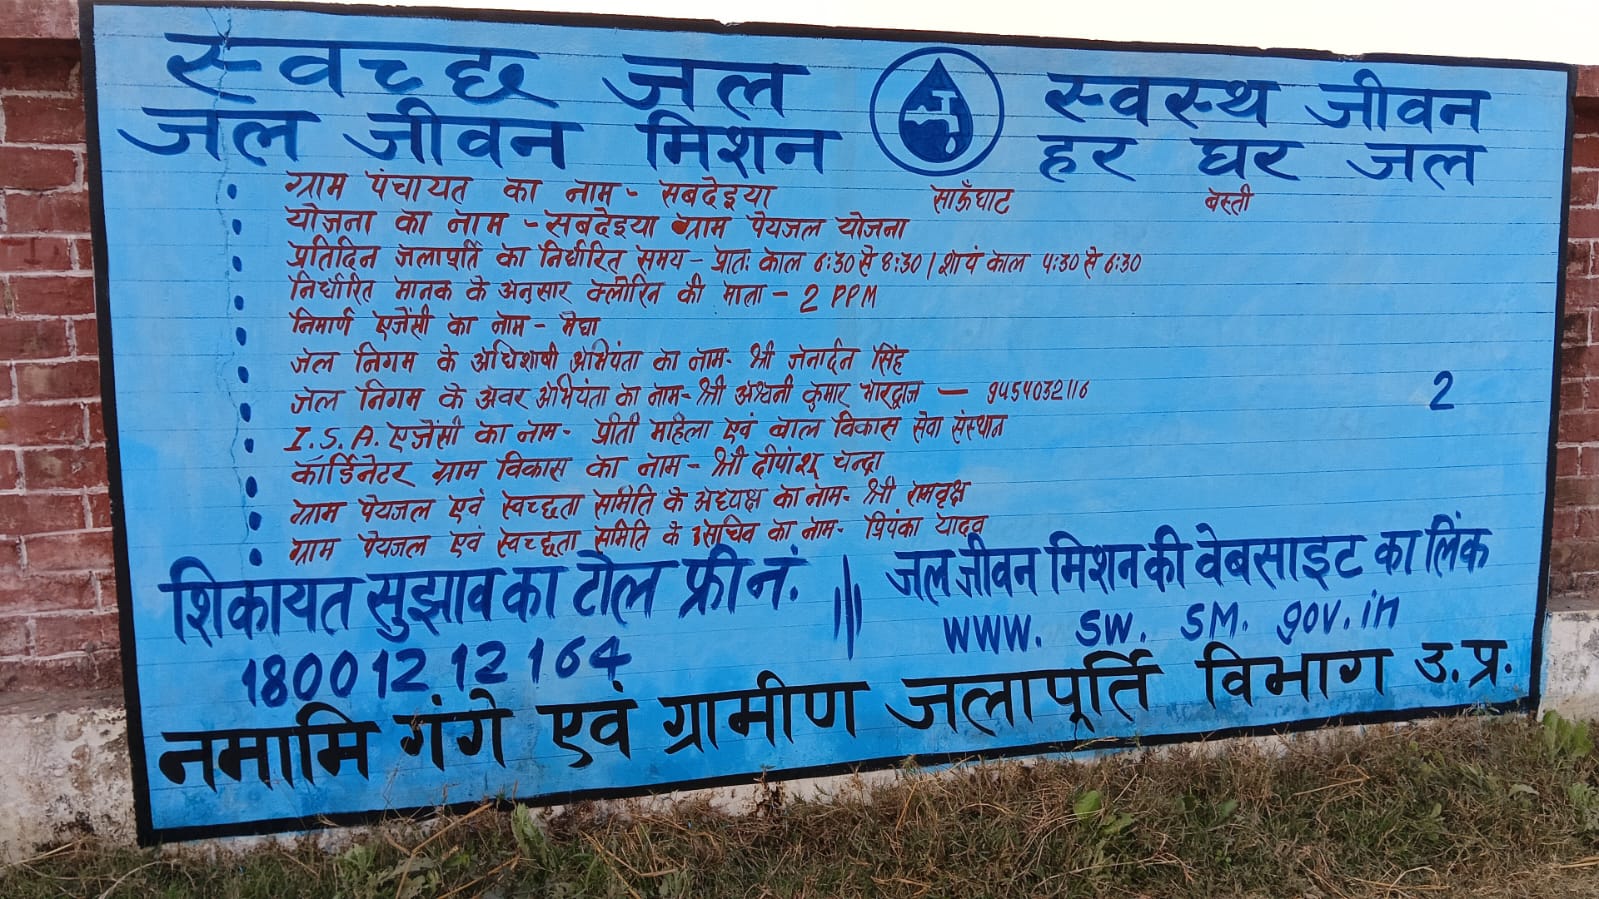 स्वच्छ जल स्वस्थ जीवन
जल जीवन मिशन हर घर जल
ग्राम पंचायत का नाम - सबदेइया साऊँघाट बस्ती
योजना का नाम - सबदेइया ग्राम पेयजल योजना
प्रतिदिन जलापूर्ति का निर्धारित समय - प्रातः काल 6:30 से 8:30 / शायं काल 4:30 से 6:30
निर्धारित मानक के अनुसार क्लोरिन की मात्रा - 2 PPM
निमार्ण एजेंसी का नाम - मेघा
जल निगम के अधिशाषी अभियंता का नाम - श्री जनार्दन सिंह
जल निगम के अवर अभियंता का नाम - श्री अश्वनी कुमार भारद्वाज - 9454032116
2
I.S.A. एजेंसी का नाम - प्रीती महिला एवं बाल विकास सेवा संस्थान
कॉर्डिनेटर ग्राम विकास का नाम - श्री दीपांशू चन्द्रा
ग्राम पेयजल एवं स्वच्छता समिति के अध्यक्ष का नाम - श्री रामवृक्ष
ग्राम पेयजल एवं स्वच्छता समिति के सचिव का नाम - प्रियंका यादव
शिकायत सुझाव का टोल फ्री नं.
18001212164
जल जीवन मिशन की वेबसाइट का लिंक
www. sw. sm. gov.in
नमामि गंगे एवं ग्रामीण जलापूर्ति विभाग उ.प्र.